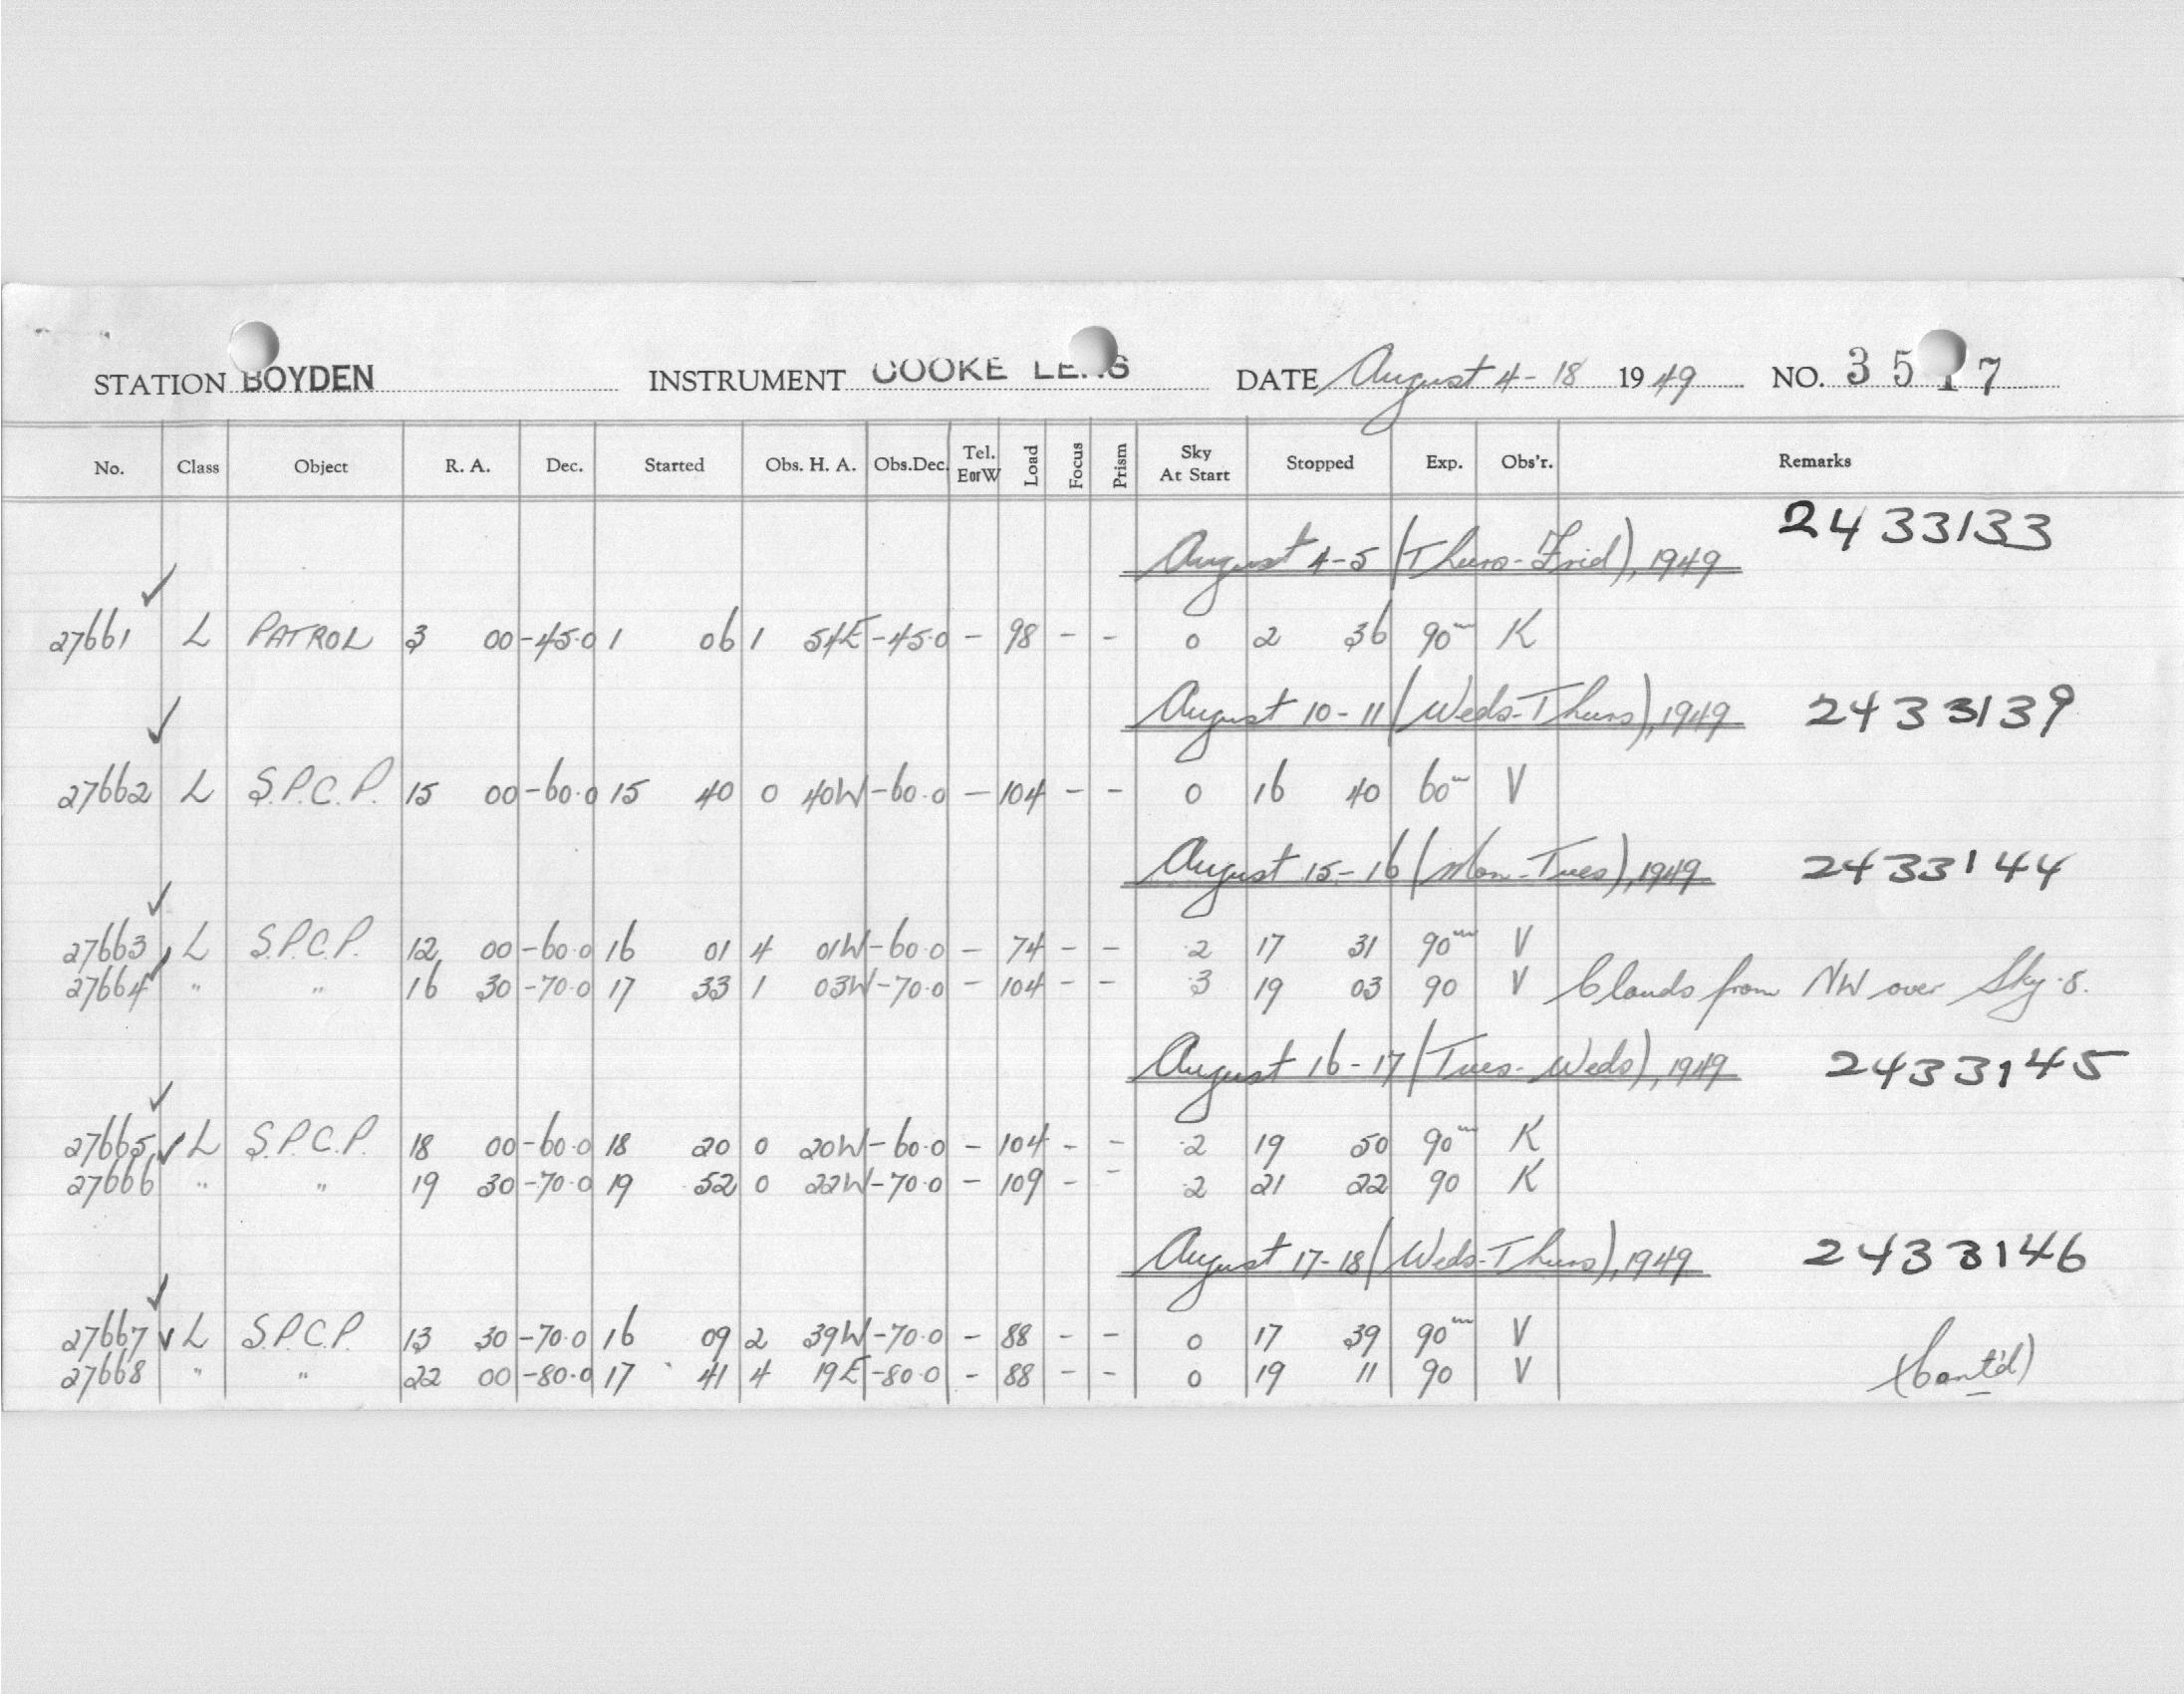 STATION BOYDEN INSTRUMENT COOKE LENS DATE August 4-18 1949 NO. 3517
No. Class Object R. A. Dec. Started Obs. H. A. Obs.Dec. Tel. EorW Load Focus Prism Sky At Start Stopped Exp. Obs'r. Remarks
August 4-5 (Thurs-Frid), 1949 2433133
✓
27661 L PATROL 3 00 -45.0 1 06 1 54E -45.0 - 98 - - 0 2 36 90m K
August 10-11 (Weds-Thurs), 1949 2433139
✓
27662 L S.P.C.P. 15 00 -60.0 15 40 0 40W -60.0 - 104 - - 0 16 40 60m V
August 15-16 (Mon-Tues), 1949 2433144
✓
27663 L S.P.C.P. 12 00 -60.0 16 01 4 01W -60.0 - 74 - - .2 17 31 90m V
27664 ✓ " " 16 30 -70.0 17 33 1 03W -70.0 - 104 - - .3 19 03 90 V Clouds from NW over Sky .8.
August 16-17 (Tues-Weds), 1949 2433145
✓
27665 ✓ L S.P.C.P. 18 00 -60.0 18 20 0 20W -60.0 - 104 - - .2 19 50 90m K
27666 " " 19 30 -70.0 19 52 0 22W -70.0 - 109 - - .2 21 22 90 K
August 17-18 (Weds-Thurs), 1949 2433146
✓
27667 ✓ L S.P.C.P. 13 30 -70.0 16 09 2 39W -70.0 - 88 - - 0 17 39 90m V
27668 " " 22 00 -80.0 17 41 4 19E -80.0 - 88 - - 0 19 11 90 V (Cont'd)